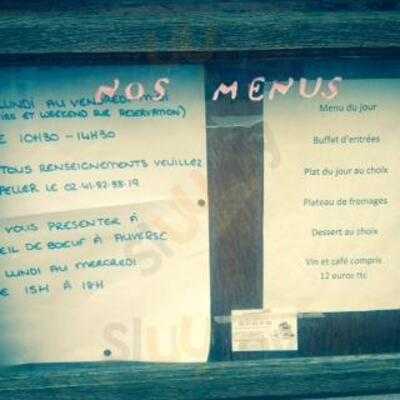 NOS MENUS
LUNDI AU VENDREDI MIDI
ET WEEKEND SUR RESERVATION)
10H30 - 14H30
TOUS RENSEIGNEMENTS VEUILLEZ
PELLER LE 02.41.82.33.19
VOUS PRESENTER À
EIL DE BOEUF À AUVERSE
LUNDI AU MERCREDI
E 15H À 18H
Menu du jour
Buffet d'entrées
Plat du jour au choix
Plateau de fromages
Dessert au choix
Vin et café compris
12 euros ttc